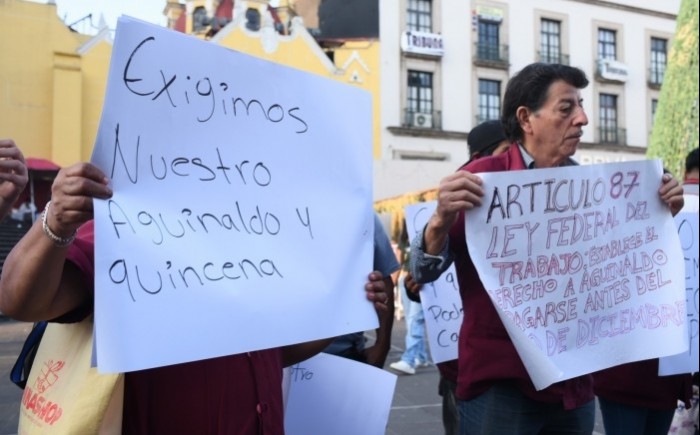 Exigimos
Nuestro
Aguinaldo y
quincena
ARTICULO 87
LEY FEDERAL DEL
TRABAJO: ESTABLECE EL
DERECHO A AGUINALDO
PAGARSE ANTES DEL
DE DICIEMBRE
TRIBUNA